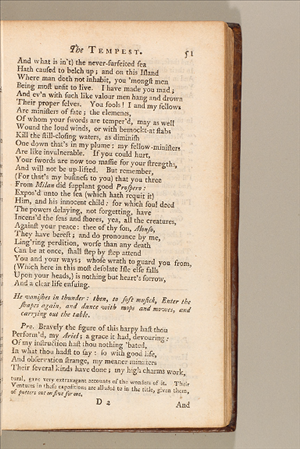 The TEMPEST. 51
And what is in't) the never-surfeited sea
Hath caused to belch up; and on this Island
Where man doth not inhabit, you 'mongst men
Being most unfit to live. I have made you mad;
And ev'n with such like valour men hang and drown
Their proper selves. You fools! I and my fellows
Are ministers of fate; the elements,
Of whom your swords are temper'd, may as well
Wound the loud winds, or with bemockt-at stabs
Kill the still-closing waters, as diminish
One down that's in my plume: my fellow-ministers
Are like invulnerable. If you could hurt,
Your swords are now too massie for your strengths,
And will not be up-lifted. But remember,
(For that's my business to you) that you three
From Milan did supplant good Prospero:
Expos'd unto the sea (which hath requit it)
Him, and his innocent child: for which foul deed
The powers delaying, not forgetting, have
Incens'd the seas and shores, yea, all the creatures,
Against your peace: thee of thy son, Alonso,
They have bereft; and do pronounce by me,
Ling'ring perdition, worse than any death
Can be at once, shall step by step attend
You and your ways; whose wrath to guard you from,
(Which here in this most desolate Isle else falls
Upon your heads,) is nothing but heart's sorrow,
And a clear life ensuing.
He vanishes in thunder: then, to soft musick, Enter the
shapes again, and dance with mops and mowes, and
carrying out the table.
Pro. Bravely the figure of this harpy hast thou
Perform'd, my Ariel; a grace it had, devouring:
Of my instruction hast thou nothing 'bated,
In what thou hadst to say: so with good life,
And observation strange, my meaner ministers
Their several kinds have done; my high charms work,
tural, gave very extravagant accounts of the wonders of it. Their
Ventures in these expeditions are alluded to in the title, given them,
of putters out on five for one.
D 2 And